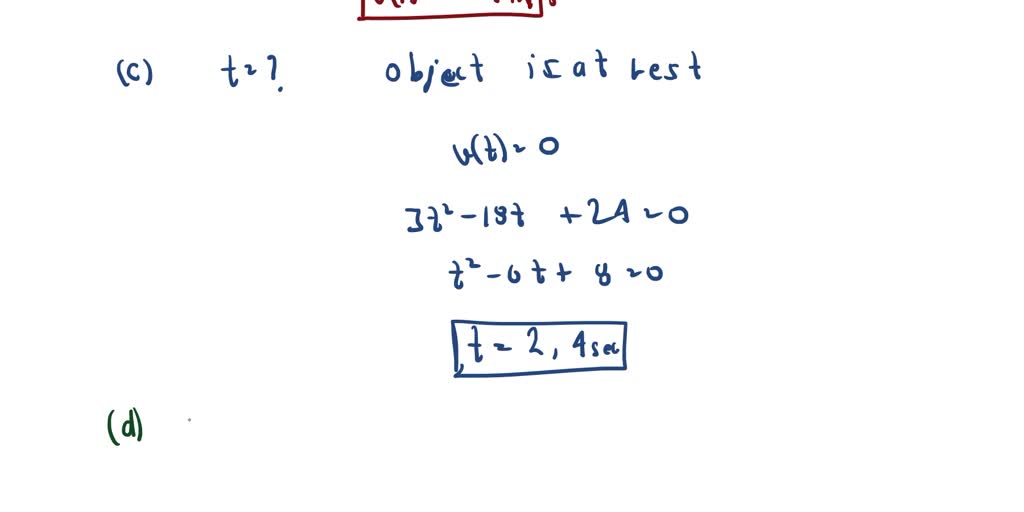 (c) t = ? object is at rest
v(t) = 0
3t² - 18t + 24 = 0
t² - 6t + 8 = 0
t = 2, 4 sec
(d)